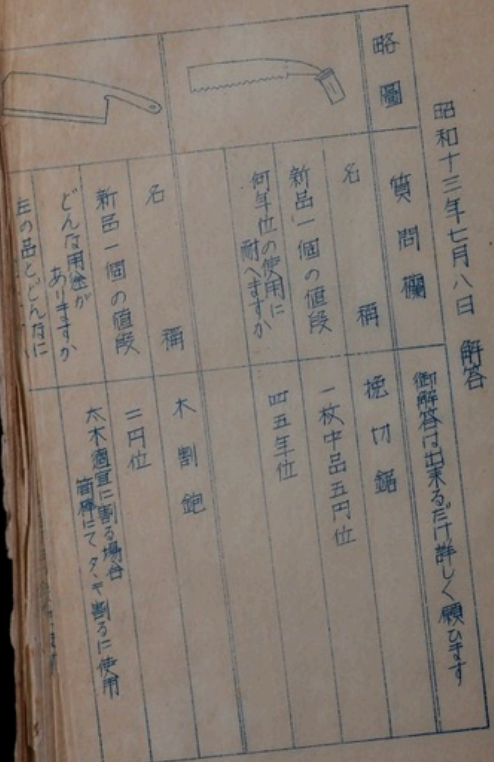 昭和十三年七月八日 解答
略圖
質問欄
御解答は出来るだけ詳しく願ひます
名稱
挽切鋸
新品一個の値段
一枚中品五円位
何年位の使用に
耐へますか
四五年位
名稱
木割鉋
新品一個の値段
二円位
どんな用途が
ありますか
大木適宜に割る場合
にてタヽキ割るに使用
の品とどんなに